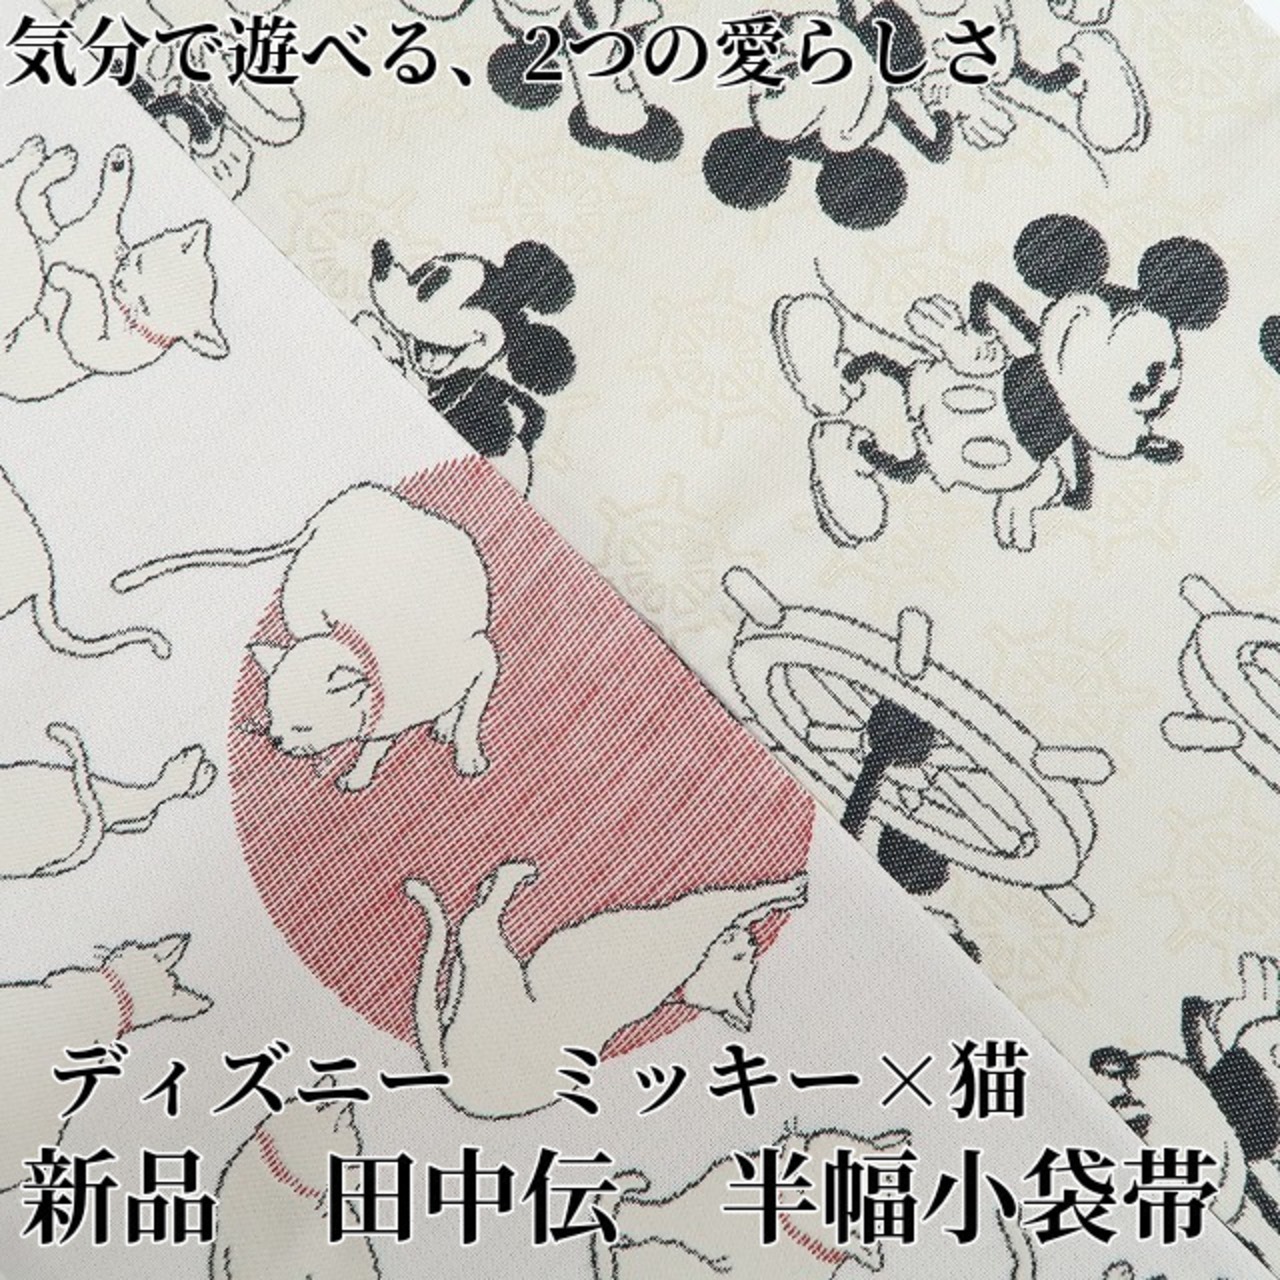 気分で遊べる、2つの愛らしさ
ディズニー　ミッキー×猫
新品　田中伝　半幅小袋帯